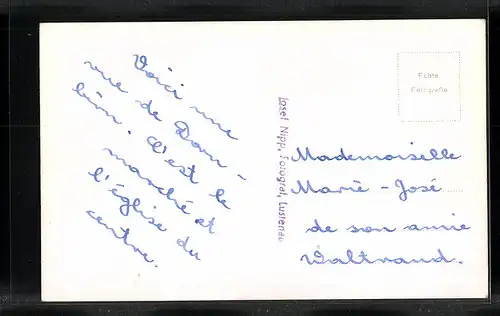 Voici une
vue de Dorn-
birn. C'est le
marché et
l'église du
centre.
Josef Nipp, Fotograf, Lustenau
Echte
Fotografie
Mademoiselle
Marie-José
de son amie
Waltraud.